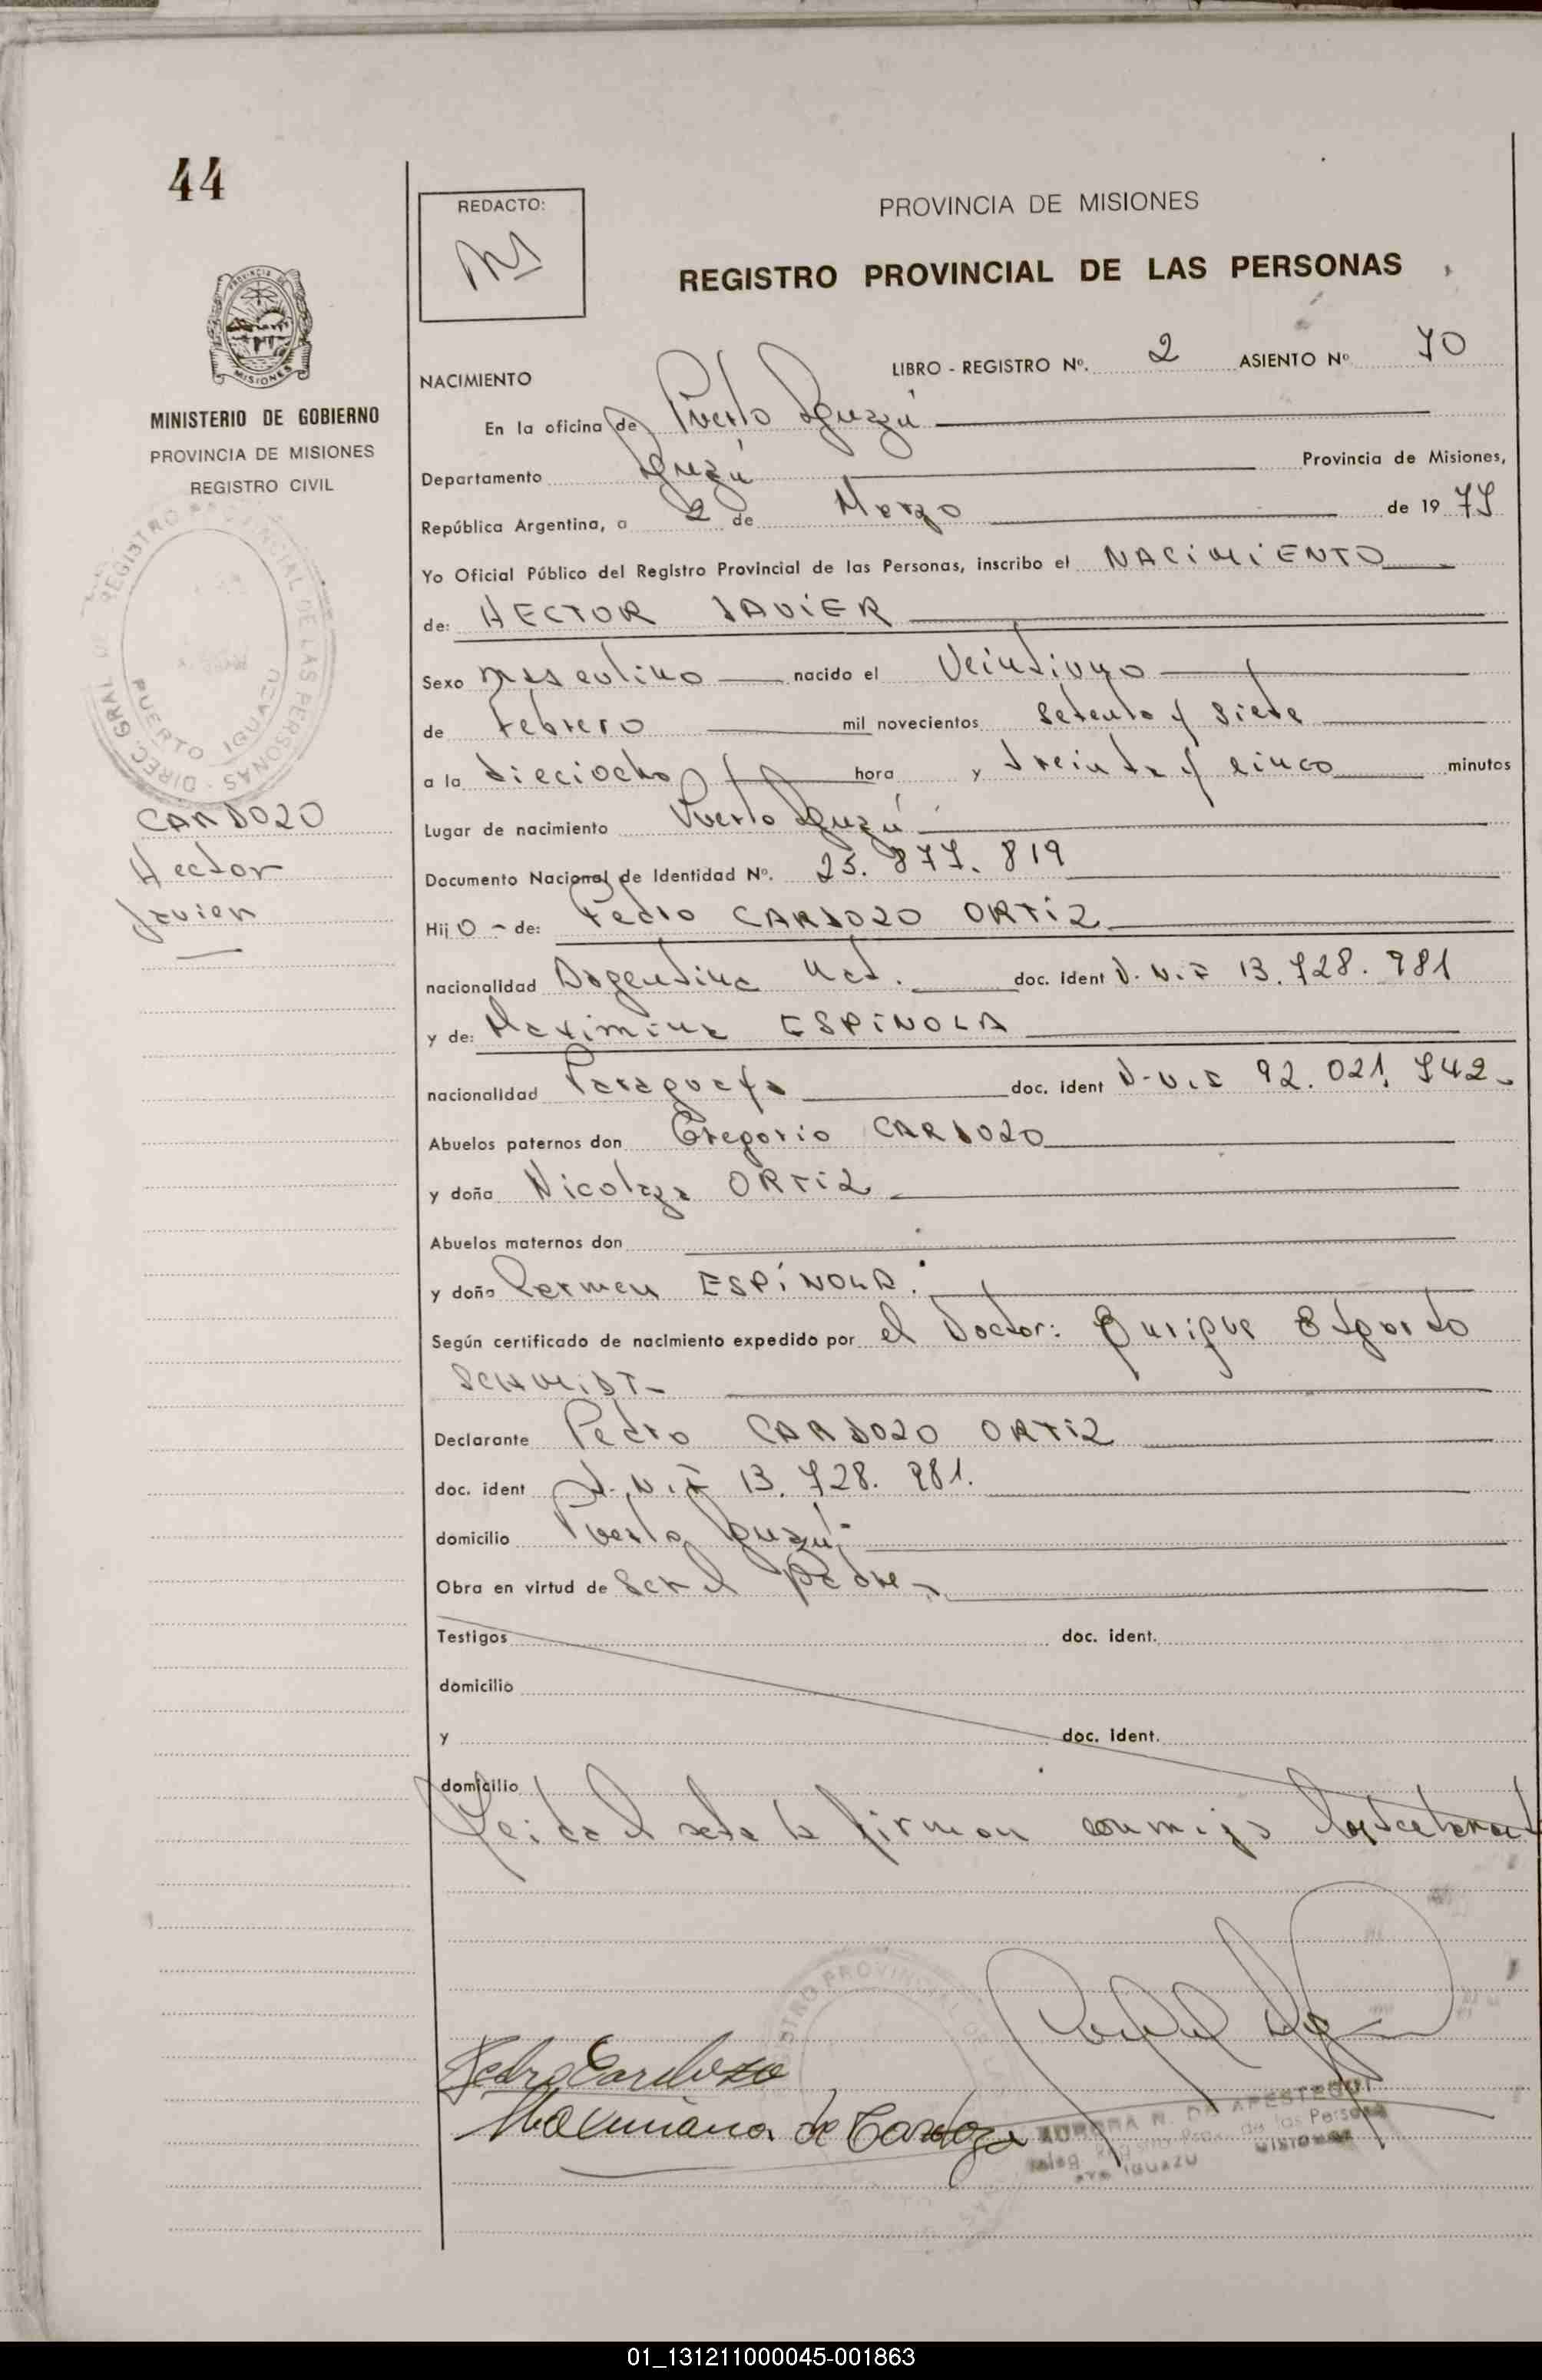 44
REDACTO:
PROVINCIA DE MISIONES
REGISTRO PROVINCIAL DE LAS PERSONAS
MISIONES
MINISTERIO DE GOBIERNO
PROVINCIA DE MISIONES
REGISTRO CIVIL
DIREC. GRAL. DEL REGISTRO PROVINCIAL DE LAS PERSONAS
PUERTO IGUAZU
CARDOZO
Hector
Javier
LIBRO - REGISTRO Nº. 2 ASIENTO Nº 70
NACIMIENTO
En la oficina de Puerto Iguazú
Departamento Iguazú Provincia de Misiones,
República Argentina, a 2 de Marzo de 1977
Yo Oficial Público del Registro Provincial de las Personas, inscribo el NACIMIENTO
de: HECTOR JAVIER
Sexo masculino nacido el Veintiuno
de Febrero mil novecientos setenta y siete
a la dieciocho hora y treinta y cinco minutos
Lugar de nacimiento Puerto Iguazú
Documento Nacional de Identidad Nº. 25.877.819
Hijo - de: Pedro CARDOZO ORTIZ
nacionalidad Argentina Nat. doc. ident D.N.I 13.728.981
y de: Maximina ESPINOLA
nacionalidad Paraguaya doc. ident D.N.I 92.021.742
Abuelos paternos don Gregorio CARDOZO
y doña Nicolaza ORTIZ
Abuelos maternos don
y doña Carmen ESPÍNOLA.
Según certificado de nacimiento expedido por el Doctor: Enrique Edgardo
SCHMIDT-
Declarante Pedro CARDOZO ORTIZ
doc. ident D.N.I 13.728.981.
domicilio Puerto Iguazú-
Obra en virtud de ser el Padre-
Testigos doc. ident.
domicilio
y doc. ident.
domicilio
Leida el acta la firman conmigo
Pedro Cardozo
Maximiana de Cardozo
AURORA N. DE APESTEGUI
Registro Prov. de las Personas
IGUAZU MISIONES
01_131211000045-001863